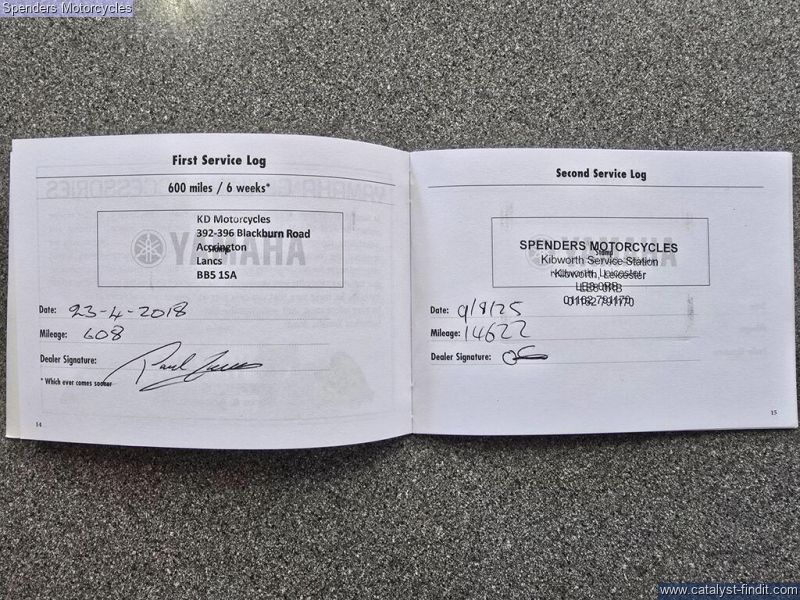 Spenders Motorcycles
First Service Log
600 miles / 6 weeks*
KD Motorcycles
392-396 Blackburn Road
Accrington
Stamp
Lancs
BB5 1SA
YAMAHA
Date: 23-4-2018
Mileage: 608
Dealer Signature:
* Which ever comes sooner
14
Second Service Log
SPENDERS MOTORCYCLES
Stamp
Kibworth Service Station
Kibworth, Leicester
LE8 0RB
01162 791170
Date: 9/8/25
Mileage: 14622
Dealer Signature:
15
www.catalyst-findit.com